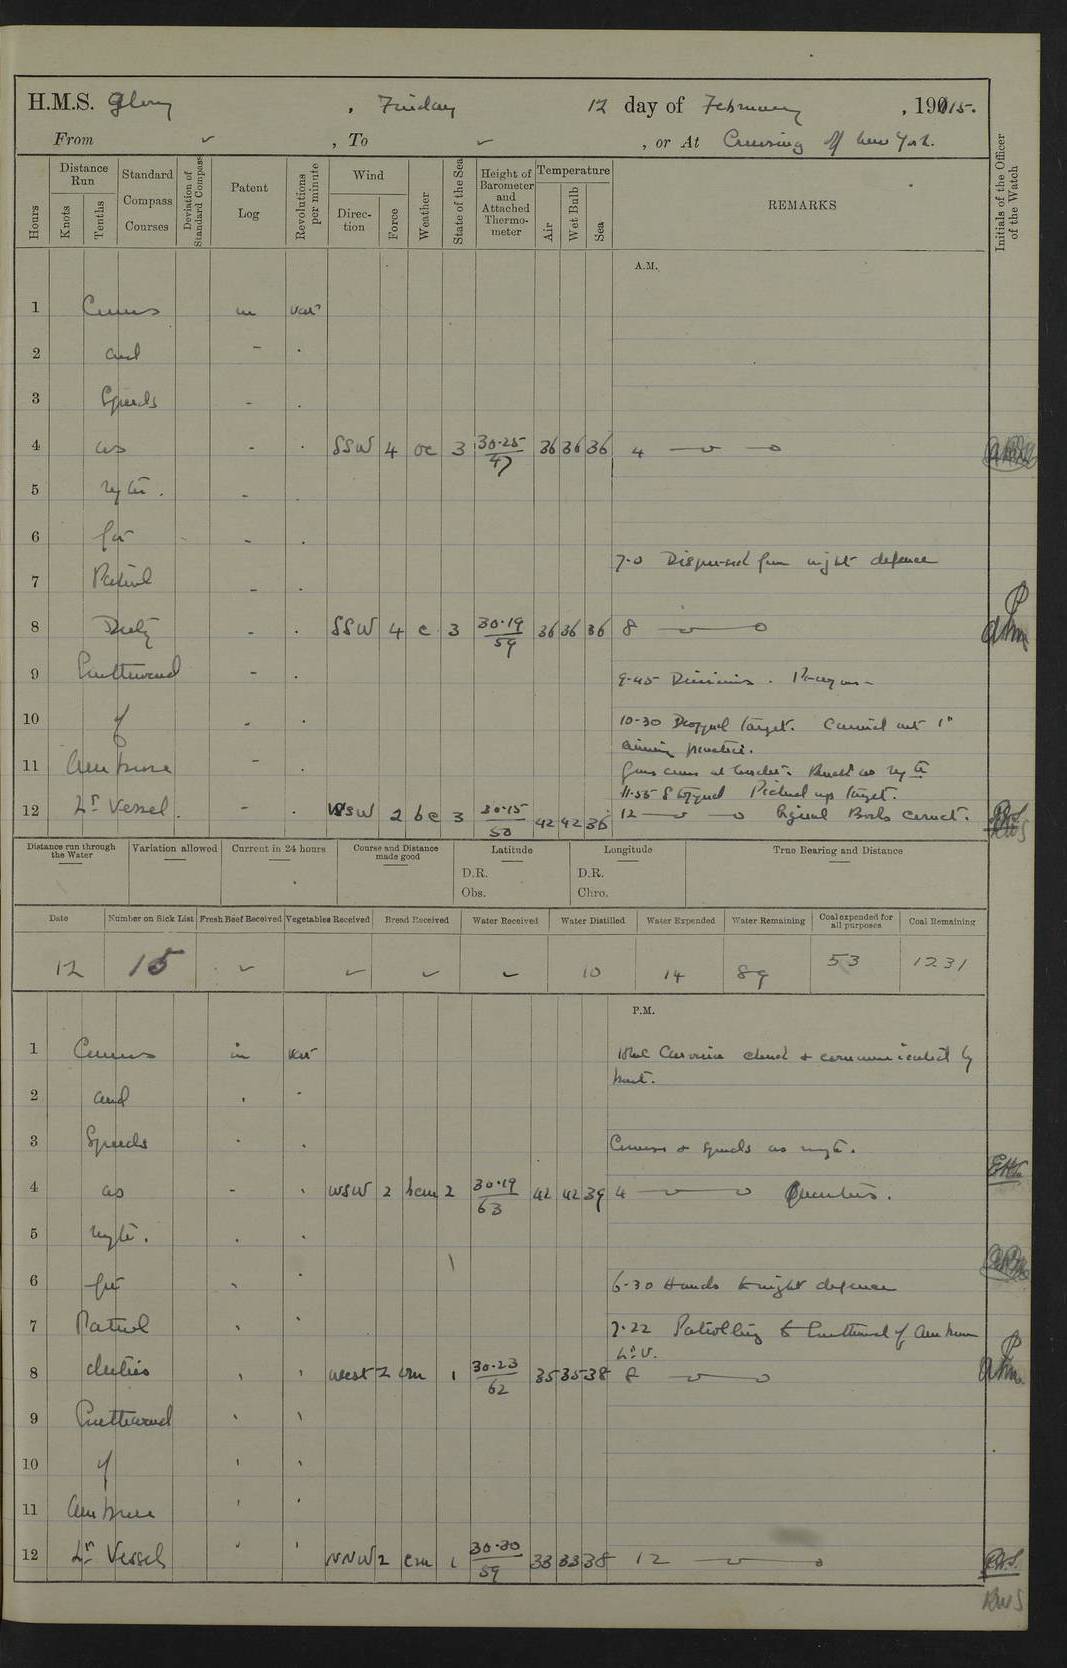 H.M.S. Glory, Friday 12 day of February, 1915.
From ✓, To ✓, or At Cruising off New York.
Hours
Distance Run
Knots
Tenths
Standard Compass Courses
Deviation of Standard Compass
Patent Log
Revolutions per minute
Wind
Direction
Force
Weather
State of the Sea
Height of Barometer and Attached Thermometer
Temperature
Air
Wet Bulb
Sea
REMARKS
Initials of the Officer of the Watch
A.M.
1 Courses
2 and
3 Speeds
4 as - . SSW 4 oc 3 30·25/47 36 36 36 4
5 reqte.
6 for
7·0 Dispersed from night defence
7 Patrol
8 Duty - . SSW 4 c 3 30·19/59 36 36 36 8
9 Southward
9-45 Divisions. Prayers -
10 of
10-30 Dropped target. Carried out 1" aiming practice.
11 Ambrose
Guns crews at loader. Course as reqte
11.55 Stopped Picked up target.
12 Lt Vessel. - . WSW 2 bc 3 30·15/58 42 42 36 12 Signal Books correct.
Distance run through the Water
Variation allowed
Current in 24 hours
Course and Distance made good
Latitude
D.R.
Obs.
Longitude
D.R.
Chro.
True Bearing and Distance
Date Number on Sick List Fresh Beef Received Vegetables Received Bread Received Water Received Water Distilled Water Expended Water Remaining Coal expended for all purposes Coal Remaining
12 15 ✓ ✓ ✓ ✓ 10 14 89 53 1231
P.M.
1 Courses
Caronia closed & communicated by boat.
2 and
3 Speeds
Courses & speeds as reqte.
4 as - . WSW 2 bcm 2 30·19/63 42 42 39 4 Quarters.
5 reqte.
6 for
6-30 Hands to night defence
7 Patrol
7·22 Patrolling to Southward of Ambrose Lt V.
8 duties . . West 2 cm 1 30·23/62 35 35 38 8
9 Southward
10 of
11 Ambrose
12 Lt Vessel . . NNW 2 cm 1 30·30/59 33 33 38 12
RWS